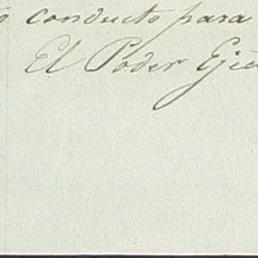 conducto para
El Poder Eje